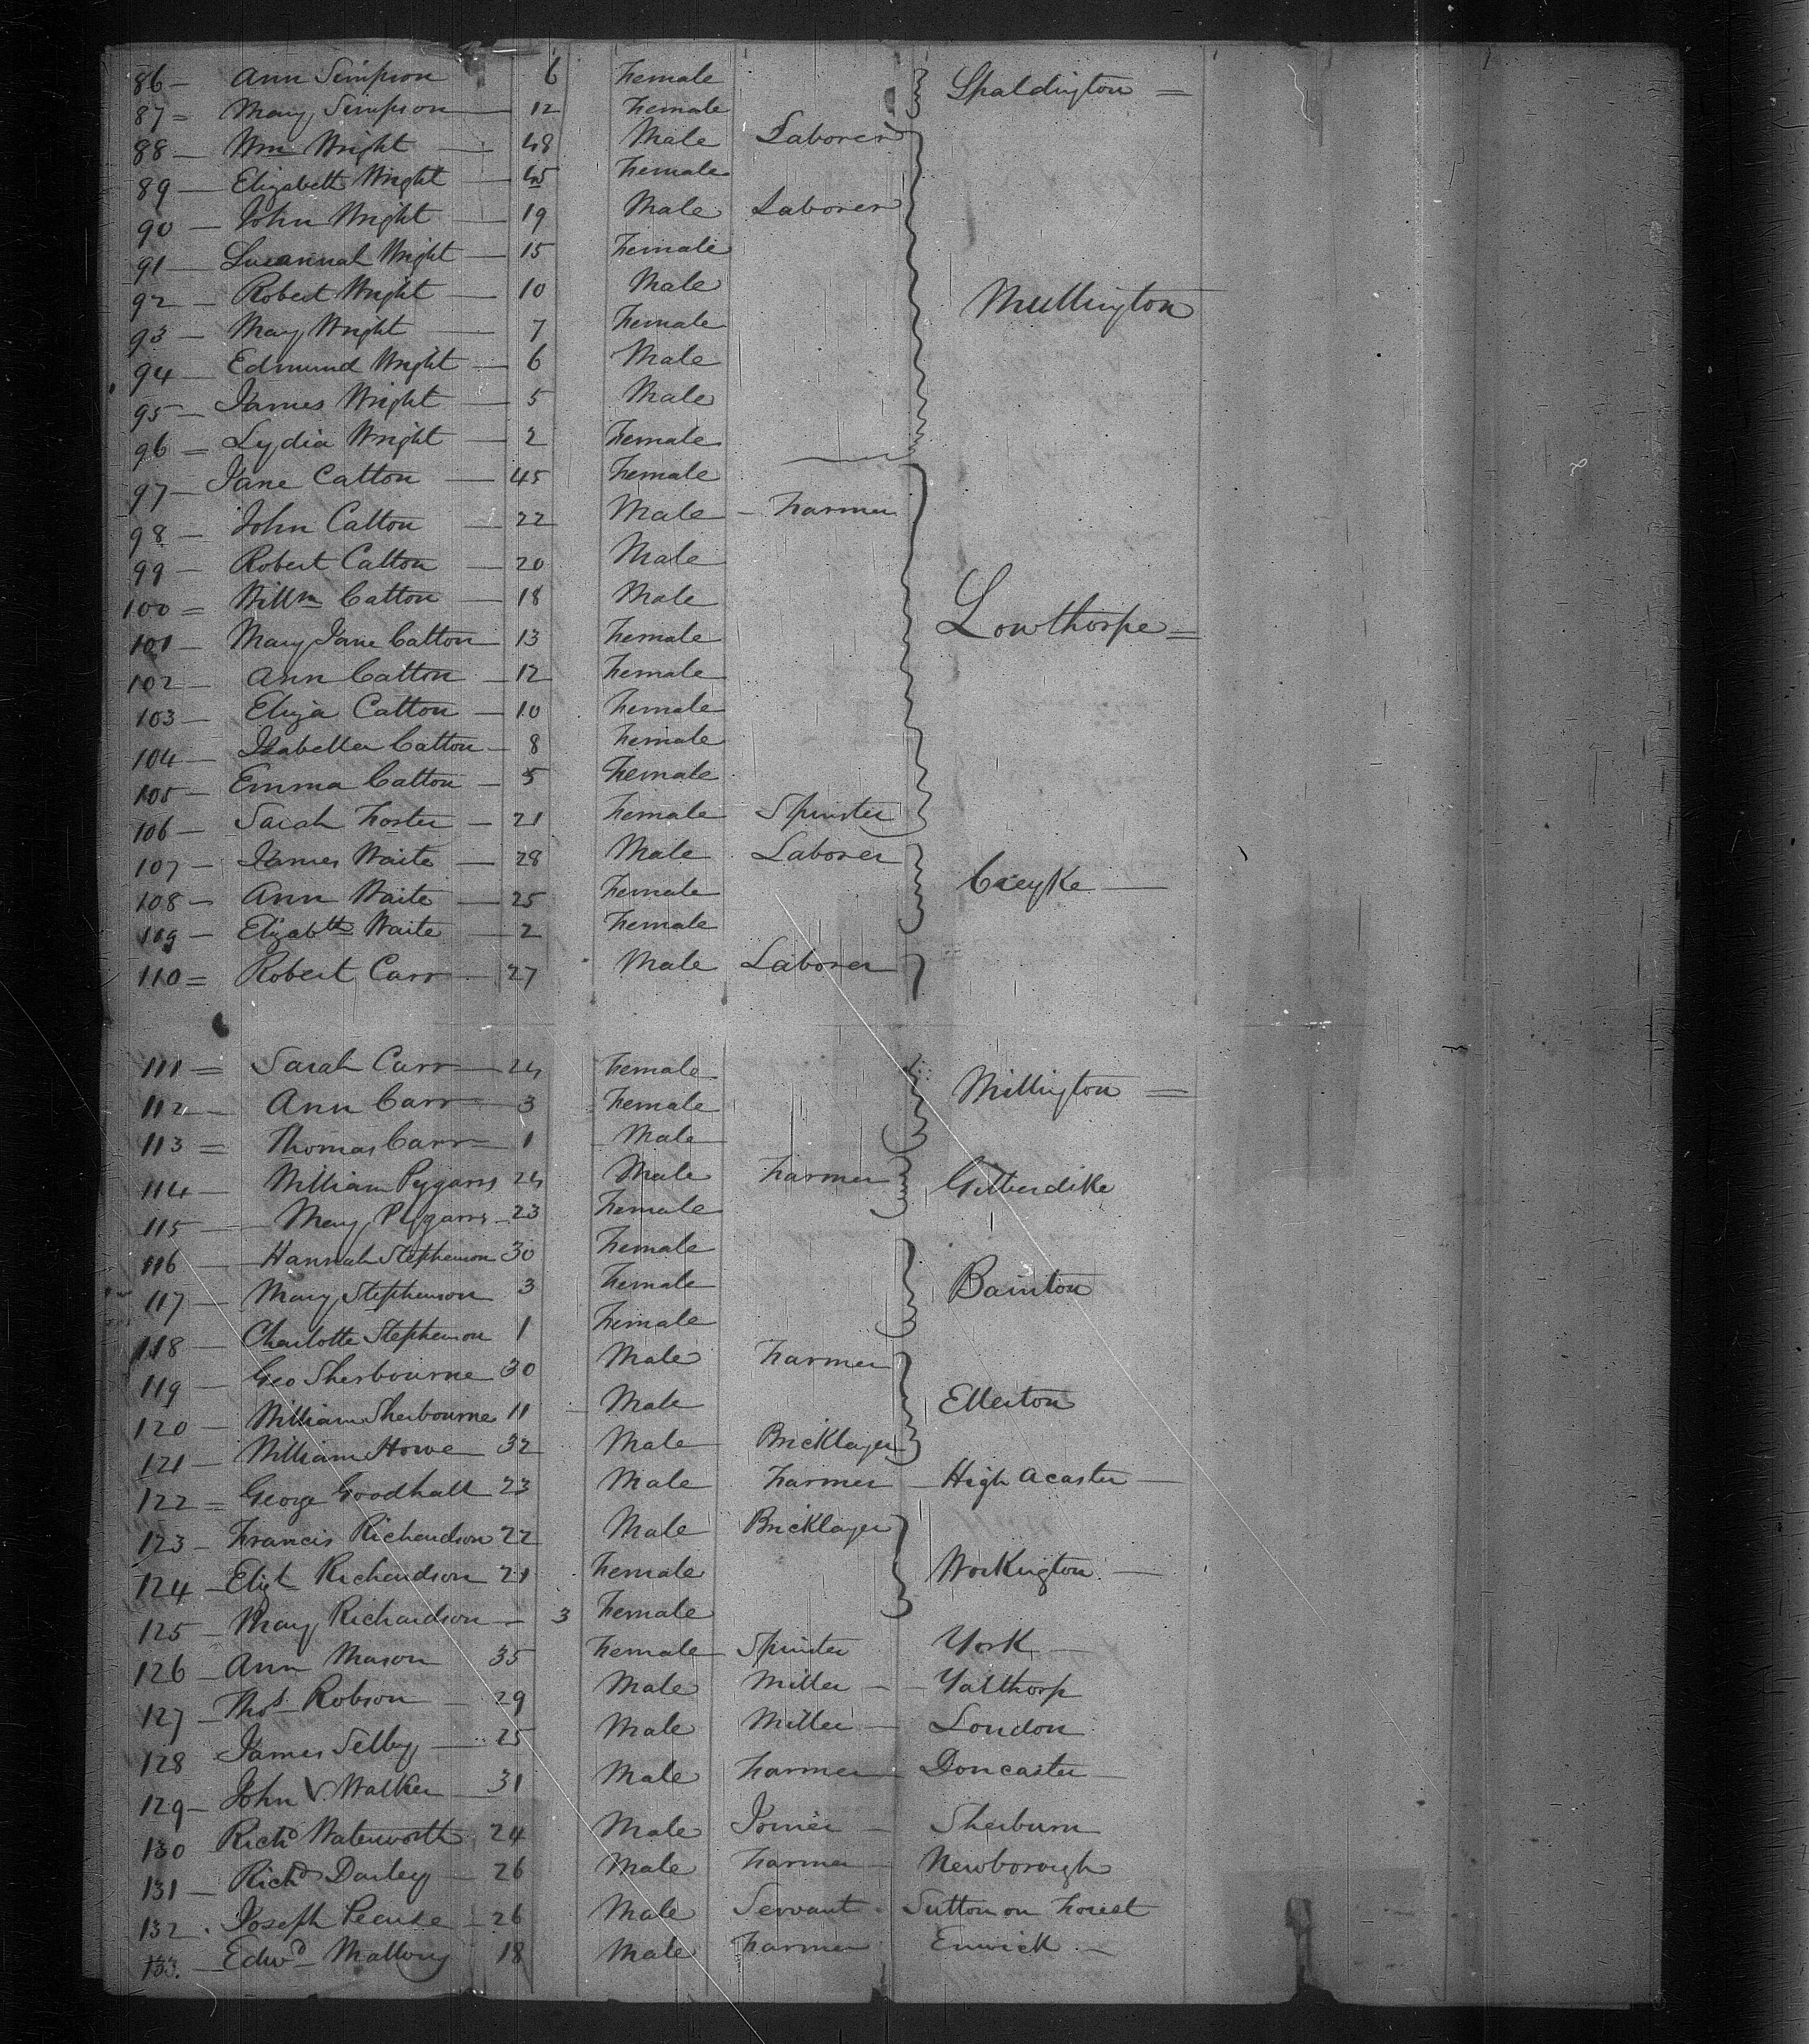 86 — Ann Simpson 6 Female Spaldington =
87 = Mary Simpson — 12 Female
88 — Wm Wright — 48 Male Laborer
89 — Elizabeth Wright — 45 Female
90 — John Wright — 19 Male Laborer
91 — Susannah Wright — 15 Female
92 — Robert Wright — 10 Male Mullington
93 — Mary Wright — 7 Female
94 — Edmund Wright — 6 Male
95 — James Wright — 5 Male
96 = Lydia Wright — 2 Female
97 — Jane Catton — 45 Female
98 — John Catton — 22 Male — Farmer
99 — Robert Catton — 20 Male
100 = Willm Catton — 18 Male Lowthorpe =
101 — Mary Jane Catton 13 Female
102 — Ann Catton — 12 Female
103 — Eliza Catton — 10 Female
104 — Isabella Catton — 8 Female
105 — Emma Catton — 5 Female
106 — Sarah Foster — 21 Female Spinster
107 — James Waite — 28 Male Laborer
108 — Ann Waite — 25 Female Creyke —
109 — Elizabth Waite — 2 Female
110 = Robert Carr — 27 Male Laborer
111 = Sarah Carr — 24 Female
112 — Ann Carr — 3 Female Millington =
113 = Thomas Carr = 1 Male
114 — William Pygarrs 24 Male Farmer Gilberdike
115 — Mary Pygarrs — 23 Female
116 — Hannah Stephenson 30 Female
117 — Mary Stephenson 3 Female Bainton
118 — Charlotte Stephenson 1 Female
119 — Geo Sherbourne 30 Male Farmer
120 — William Sherbourne 11 — Male Ellerton
121 — William Howe 32 Male Bricklayer
122 = George Goodhall 23 Male Farmer — High Acaster —
123 — Francis Richardson 22 Male Bricklayer
124 — Elizt Richardson 21 Female Workington —
125 — Mary Richardson — 3 Female
126 — Ann Mason 35 Female Spinster York —
127 — Thos Robson — 29 Male Miller — Yalthorp
128 James Selby — 25 Male Miller — London
129 — John V. Walker — 31 Male Farmer — Doncaster —
130 Richd Waterworth 24 Male Joiner — Sherburn
131 — Richd Darley — 26 Male Farmer — Newborough
132 . Joseph Pearse — 26 Male Servant . Sutton on Forest
133. — Edwd Mallory 18 Male Farmer Enwick —